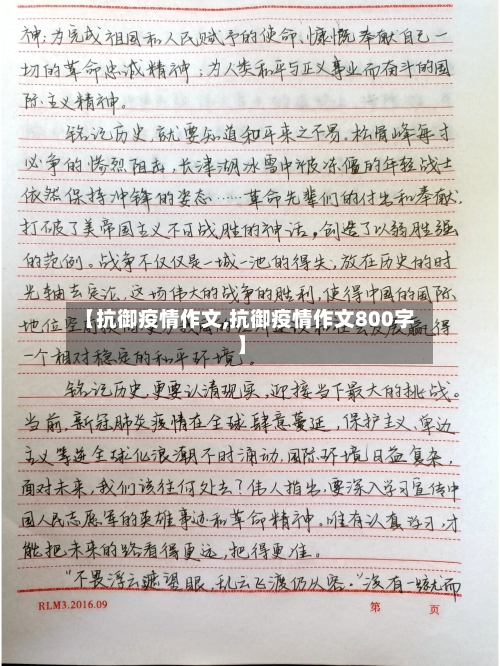 神；为完成祖国和人民赋予的使命、慷慨奉献自己一
切的革命忠诚精神；为人类和平与正义事业而奋斗的国
际主义精神。
铭记历史，就要知道和平来之不易。松骨峰每寸
必争的惨烈阻击，长津湖冰雪中被冻僵的年轻战士
依然保持冲锋的姿态……革命先辈们的付出和奉献，
打破了美帝国主义不可战胜的神话，创造了以弱胜强
的范例。战争不仅仅是一城一池的得失，放在历史的时
光轴去定论，这场伟大的战争的胜利，使得中国的国际
【抗御疫情作文,抗御疫情作文800字
】
地位空
赢得
一个相对稳定的和平环境。
铭记历史，更要认清现实，迎接当下最大的挑战。
当前，新冠肺炎疫情在全球肆意蔓延，保护主义、单边
主义等逆全球化浪潮不时涌动，国际环境日益复杂，
面对未来，我们该往何处去？伟人指出，要深入学习宣传中
国人民志愿军的英雄事迹和革命精神。唯有认真学习，才
能把未来的路看得更远，把得更准。
“不畏浮云遮望眼，乱云飞渡仍从容。”没有一蹴而
RLM3.2016.09
第 页